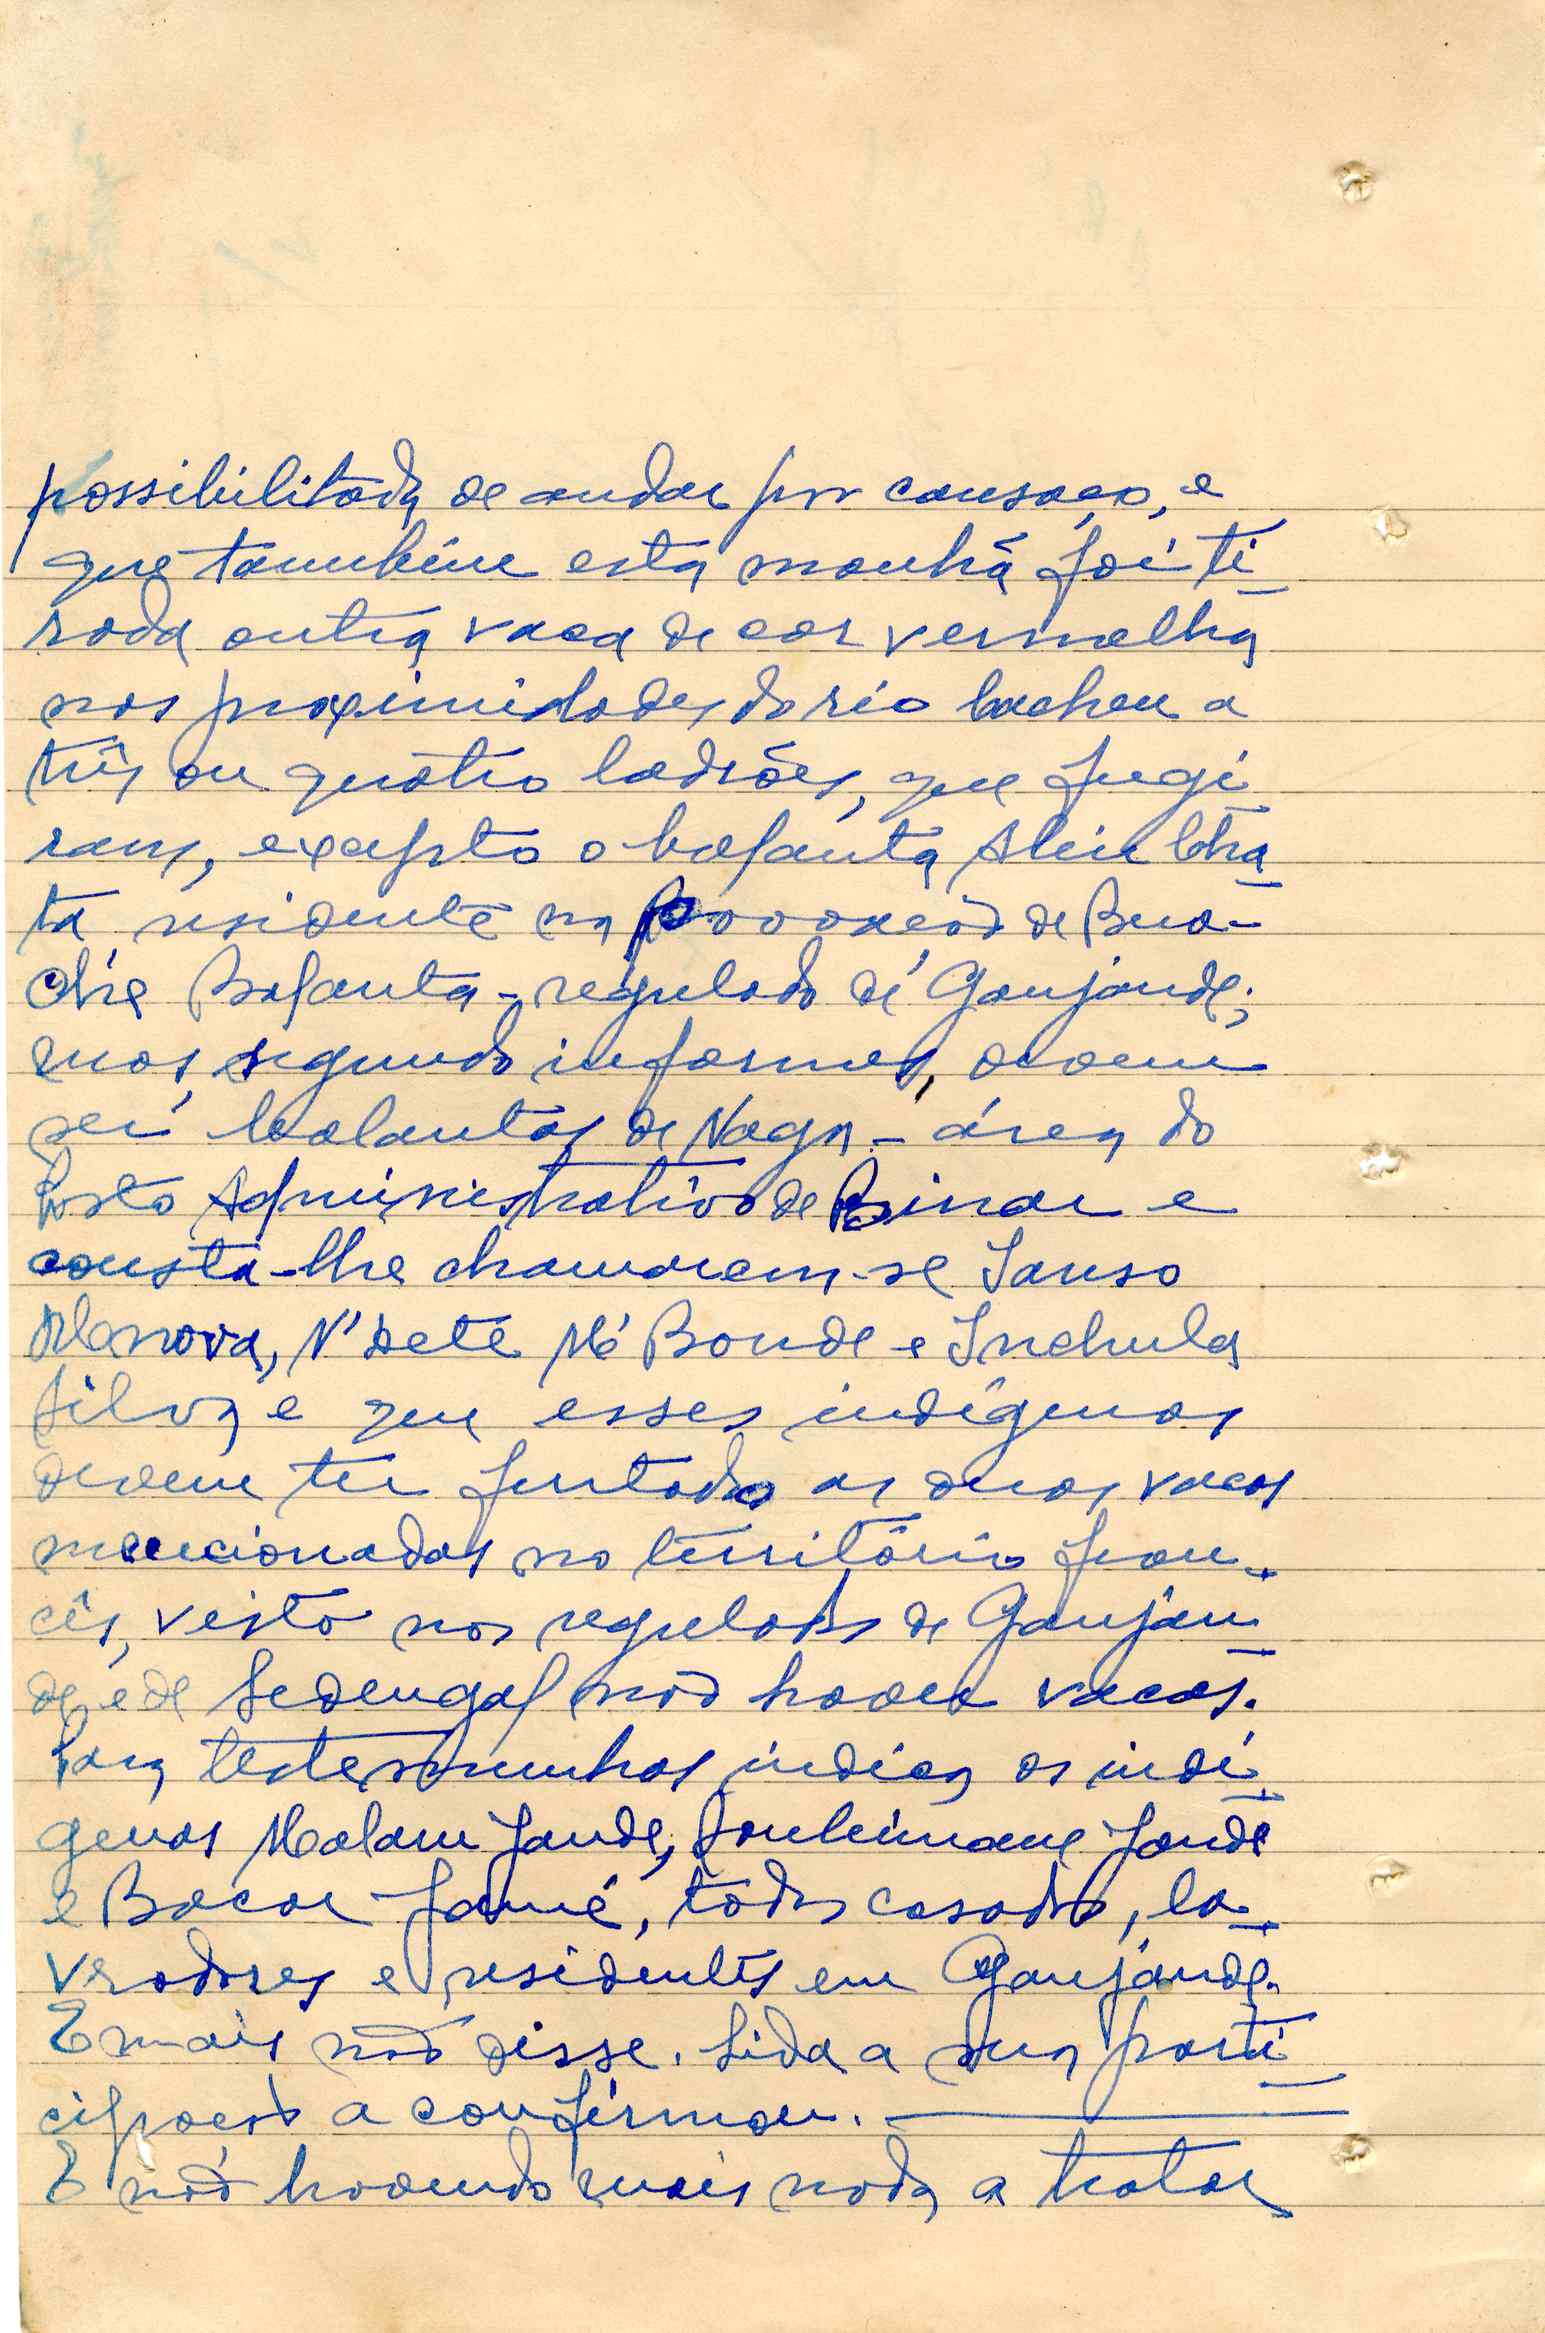 possibilitada de andar por cansaço, e
que também esta manhã foi ti-
rada outra vaca de cor vermelha
nas proximidades do rio Cacheu a
três ou quatro ladrões, que fugi-
ram, excepto o bafanta Alein Cha-
ta residente na povoação de Bua-
che Bafanta - regulado de Ganjande;
mas, segundo informes, devem
ser balantas de Naga - área do
Posto Administrativo de Binar e
consta-lhe chamarem-se Sanso
Manova, N'Dete M'Bonde e Inchula
Silva e que esses indígenas
devem ter furtado as duas vacas
mencionadas no território fran-
cês, visto nos regulados de Ganjan-
de e de Sedengal não haver vacas.
Para testemunhas indica os indí-
genas Malam Jande, Souleimane Jande
e Bacar Jamé, todos casados, la-
vradores e residentes em Ganjande.
E mais não disse. Lida a sua parti-
cipação a confirmou.
E não havendo mais nada a tratar